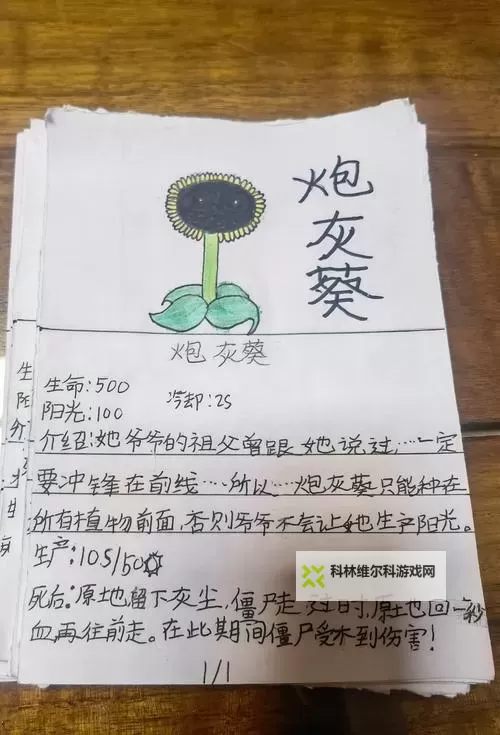 炮
灰
葵
炮灰葵
生命:500
阳光:100 冷却:2S
介绍:她爷爷的祖父曾跟她说过,……一定
要冲锋在前线……所以……炮灰葵只能种在
所有植物前面,否则爷爷不会让她生产阳光。
生产:10S/50
科林维尔科游戏网
死后:原地留下灰尘,僵尸走过时,原地回一秒
血再往前走。在此期间僵尸受不到伤害!
1/1
生
阳
介